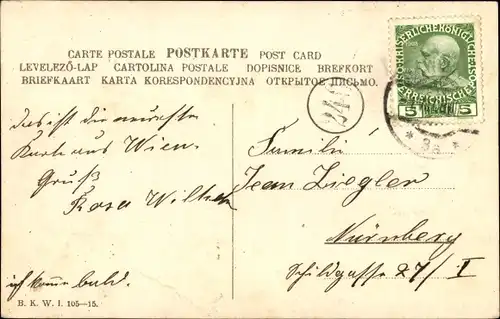 CARTE POSTALE POSTKARTE POST CARD
LEVELEZŐ-LAP CARTOLINA POSTALE DOPISNICE BREFKORT
BRIEFKAART KARTA KORESPONDENCYJNA ОТКРЫТОЕ ПИСЬМО.
KAISERLICHE KÖNIGLICHE ÖSTERREICHISCHE
1908
5 5
Das ist die neueste
Karte aus Wien.
Gruß
Rosa
ich komme bald.
Familie
Jean Ziegler
Nürnberg
Schildgasse 27/I
B. K. W. I. 105—15.